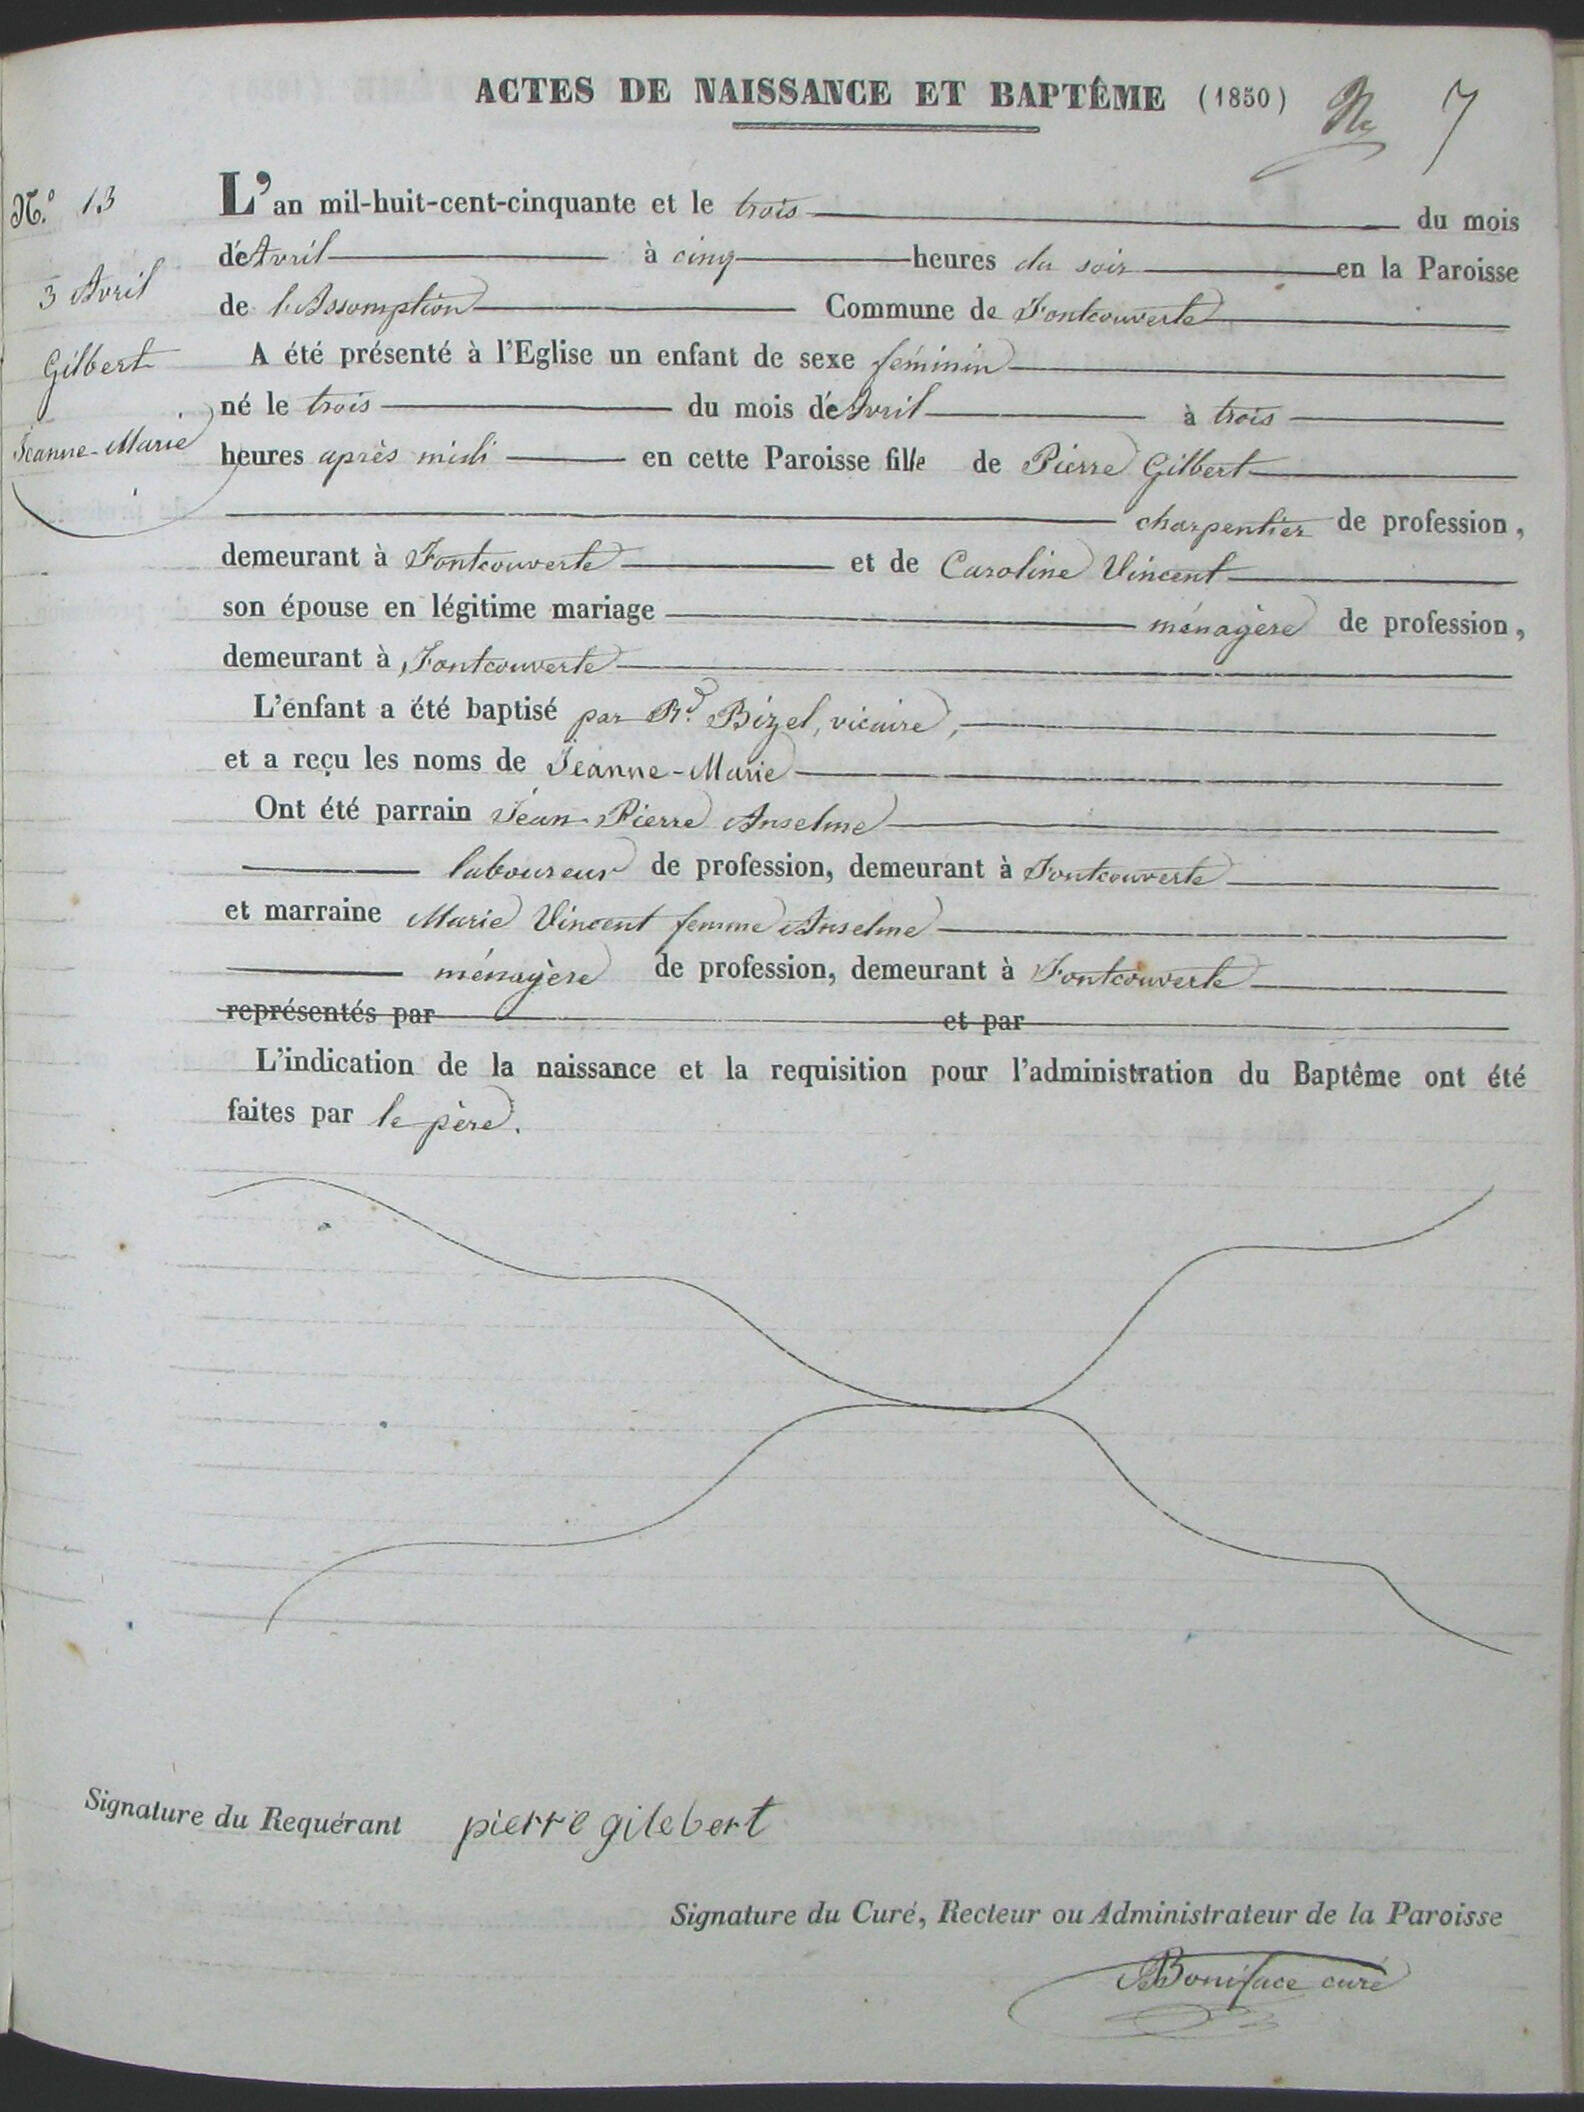 ACTES DE NAISSANCE ET BAPTÊME (1850) 7
N.º 13
3 Avril
Gilbert
Jeanne-Marie
L'an mil-huit-cent-cinquante et le trois du mois
d'Avril à cinq heures du soir en la Paroisse
de l'Assomption Commune de Fontcouverte
A été présenté à l'Eglise un enfant de sexe féminin
né le trois du mois d'Avril à trois
heures après midi en cette Paroisse fille de Pierre Gilbert
charpentier de profession,
demeurant à Fontcouverte et de Caroline Vincent
son épouse en légitime mariage ménagère de profession,
demeurant à Fontcouverte
L'enfant a été baptisé par Rd. Bizel, vicaire,
et a reçu les noms de Jeanne-Marie
Ont été parrain Jean-Pierre Anselme
laboureur de profession, demeurant à Fontcouverte
et marraine Marie Vincent femme Anselme
ménagère de profession, demeurant à Fontcouverte
représentés par et par
L'indication de la naissance et la requisition pour l'administration du Baptême ont été
faites par le père.
Signature du Requérant pierre gilebert
Signature du Curé, Recteur ou Administrateur de la Paroisse
Boniface curé